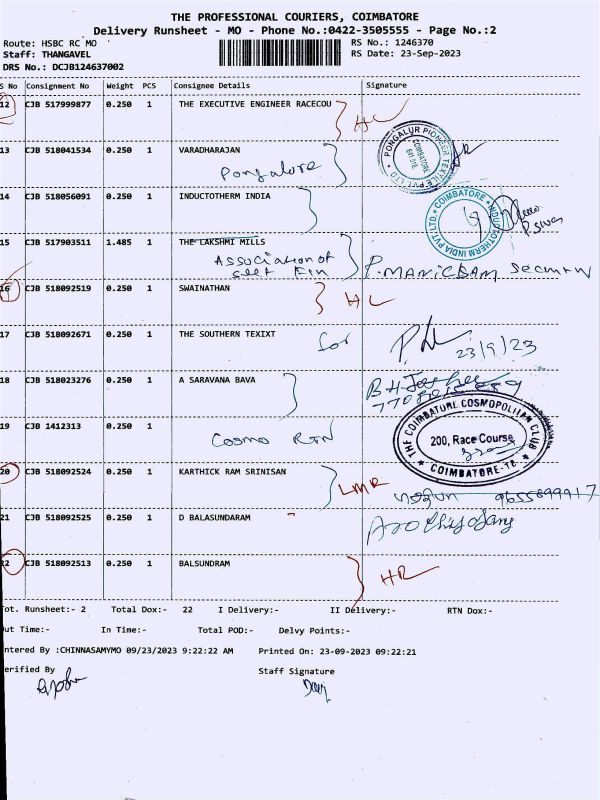 THE PROFESSIONAL COURIERS, COIMBATORE
Delivery Runsheet - MO - Phone No.:0422-3505555 - Page No.:2
Route: HSBC RC MO
RS No.: 1246370
Staff: THANGAVEL
RS Date: 23-Sep-2023
DRS No.: DCJB124637002
S No Consignment No Weight PCS Consignee Details Signature
12 CJB 517999877 0.250 1 THE EXECUTIVE ENGINEER RACECOU
PONGALUR PIONEER TEXTILE PVT LTD COIMBATORE
13 CJB 518041534 0.250 1 VARADHARAJAN
Pongalore
14 CJB 518056091 0.250 1 INDUCTOTHERM INDIA
INDUCTOTHERM INDIA PVT. LTD. COIMBATORE
15 CJB 517903511 1.485 1 THE LAKSHMI MILLS
Association of
P. MANICKAM
16 CJB 518092519 0.250 1 SWAINATHAN
HL
17 CJB 518092671 0.250 1 THE SOUTHERN TEXIXT
for
23/9/23
18 CJB 518023276 0.250 1 A SARAVANA BAVA
THE COIMBATORE COSMOPOLITAN CLUB
200, Race Course
COIMBATORE-18
19 CJB 1412313 0.250 1
Cosmo RTN
20 CJB 518092524 0.250 1 KARTHICK RAM SRINISAN
LMR
9655899917
21 CJB 518092525 0.250 1 D BALASUNDARAM
22 CJB 518092513 0.250 1 BALSUNDRAM
HR
Tot. Runsheet:- 2 Total Dox:- 22 I Delivery:- II Delivery:- RTN Dox:-
ut Time:- In Time:- Total POD:- Delvy Points:-
ntered By :CHINNASAMYMO 09/23/2023 9:22:22 AM Printed On: 23-09-2023 09:22:21
erified By Staff Signature